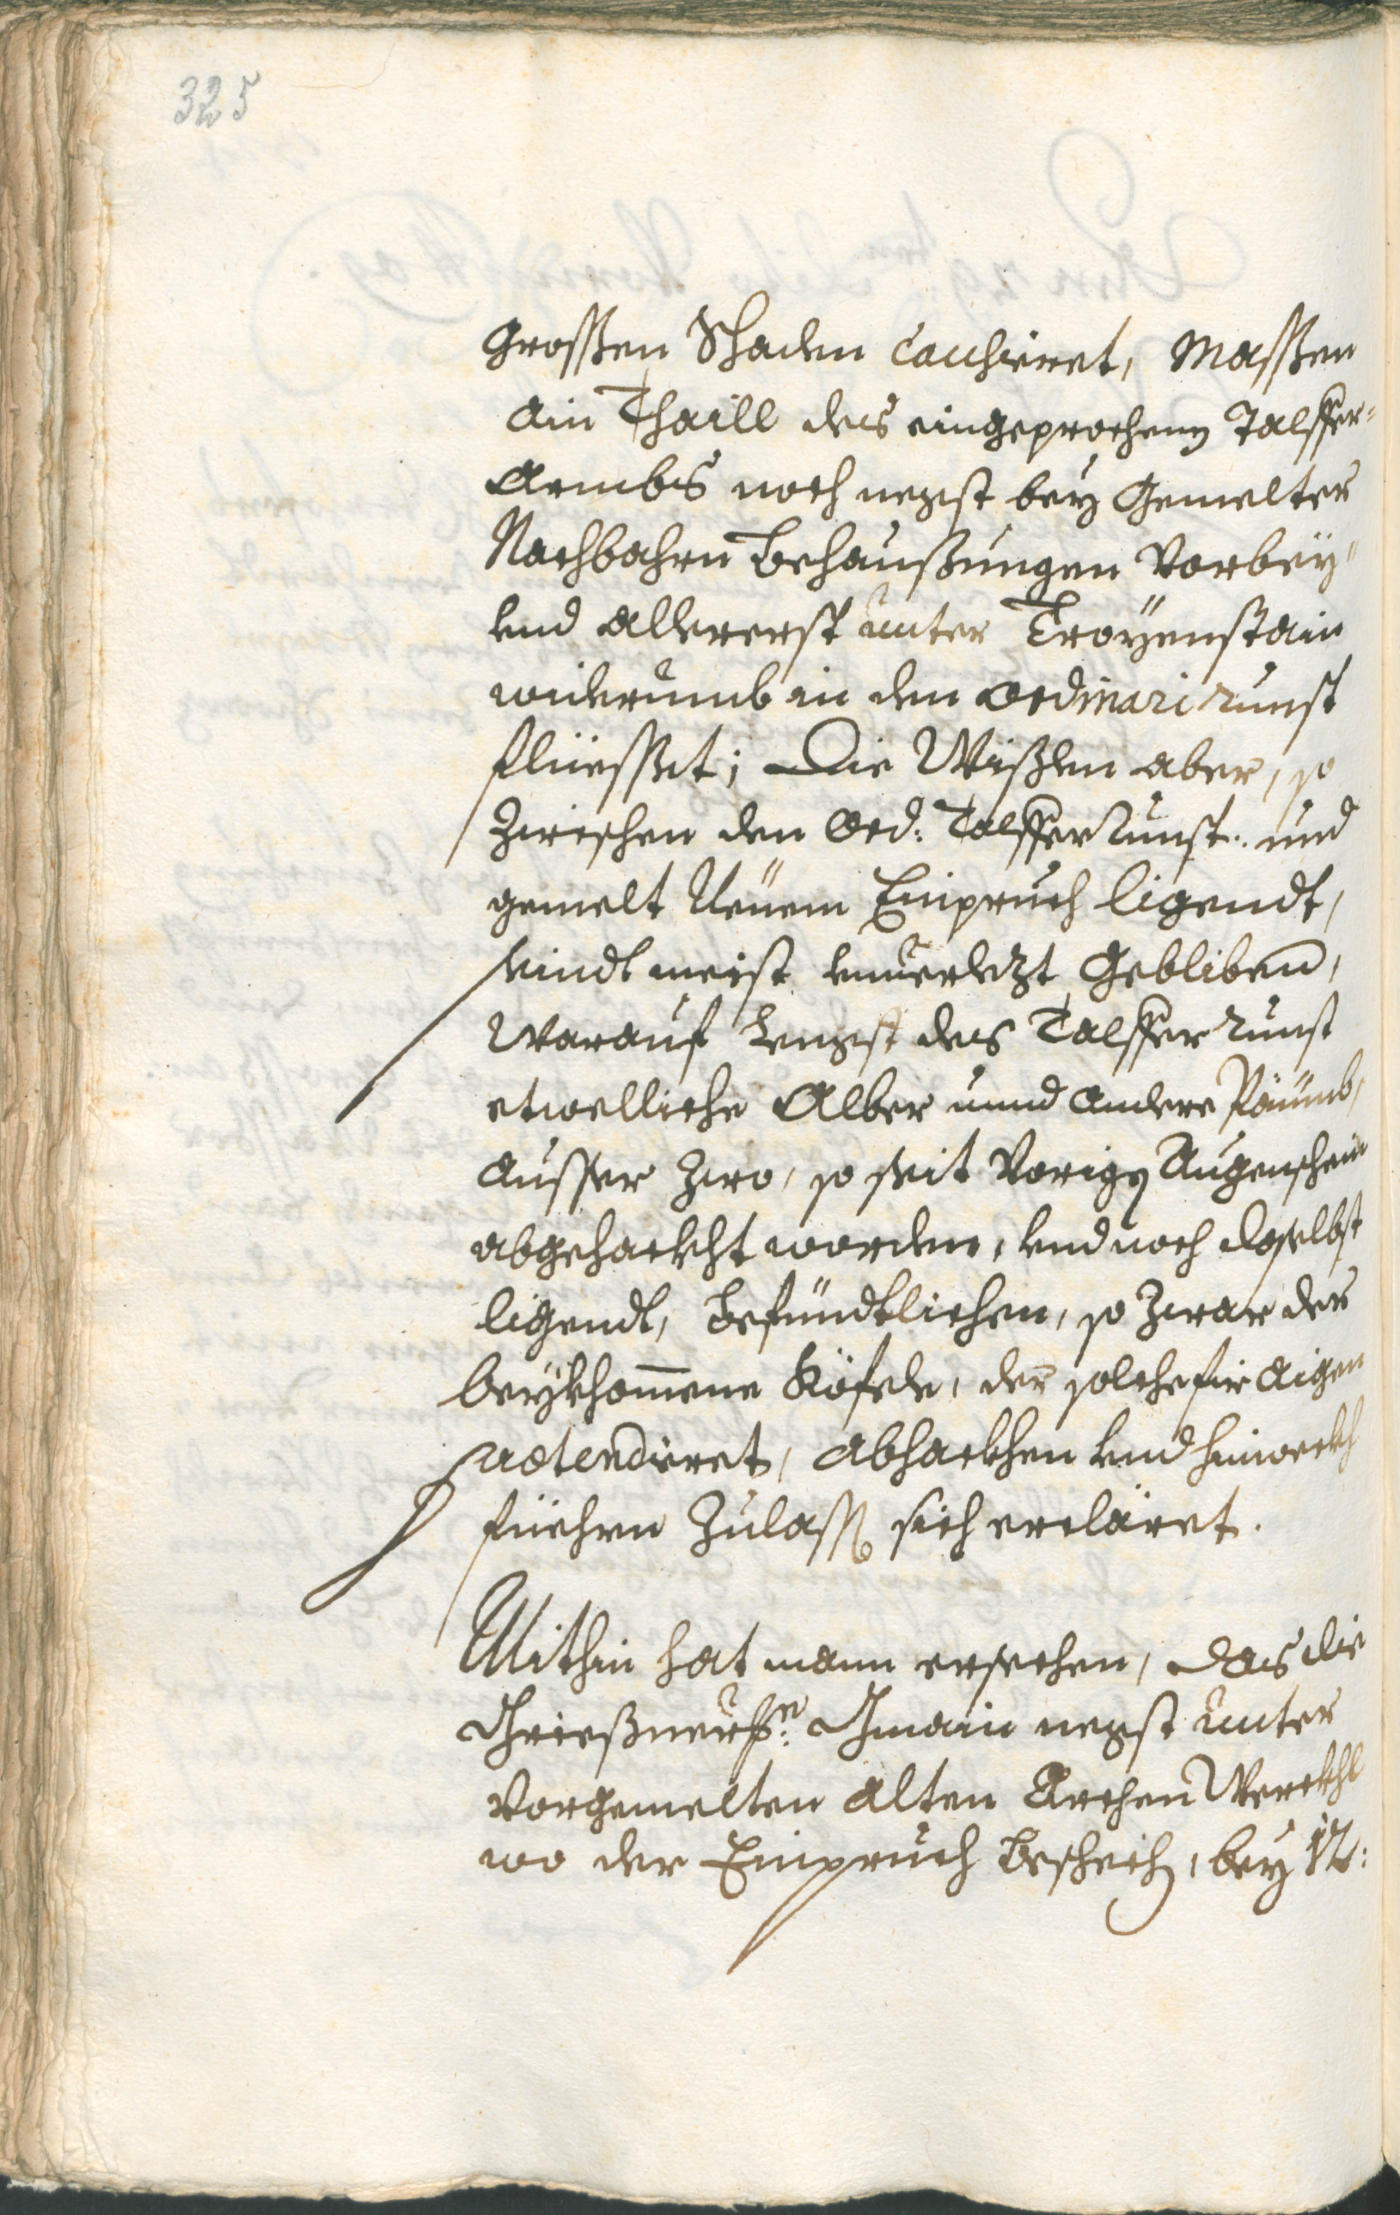 325
grossen Schaden causieret, massen
ain Thaill des eingeprochenen Talffer-
Armbs noch negst bey gemelter
Nachbahrn Behaußungen vorbey-
vnd allererst unter Troÿenstain
widerumb in den ordinari runst
fliesset; die Wißen aber, so
zwischen den Ord: Talffer Runst und
gemelt Neüem Einpruch ligendt,
seindt meist unverlezt gebliben,
warauf lengst des Talffer runst
etwelliche Alber unnd andere Päumb,
ausser zwo, so seit vorigen Augenschein
abgehackht worden, vnd noch daselbst
ligendt, befündtlichen, so zwar der
beykhomene Köfele, der solche für aigen
praetendieret, abhackhen vnd hinweckh
füehren zulassen sich ercläret.
Mithin hat mann ersechen, das die
Grießnerische Gmain negst unter
vorgemelten alten Archen Werckhl
wo der Einpruch beschechen, bey 12: